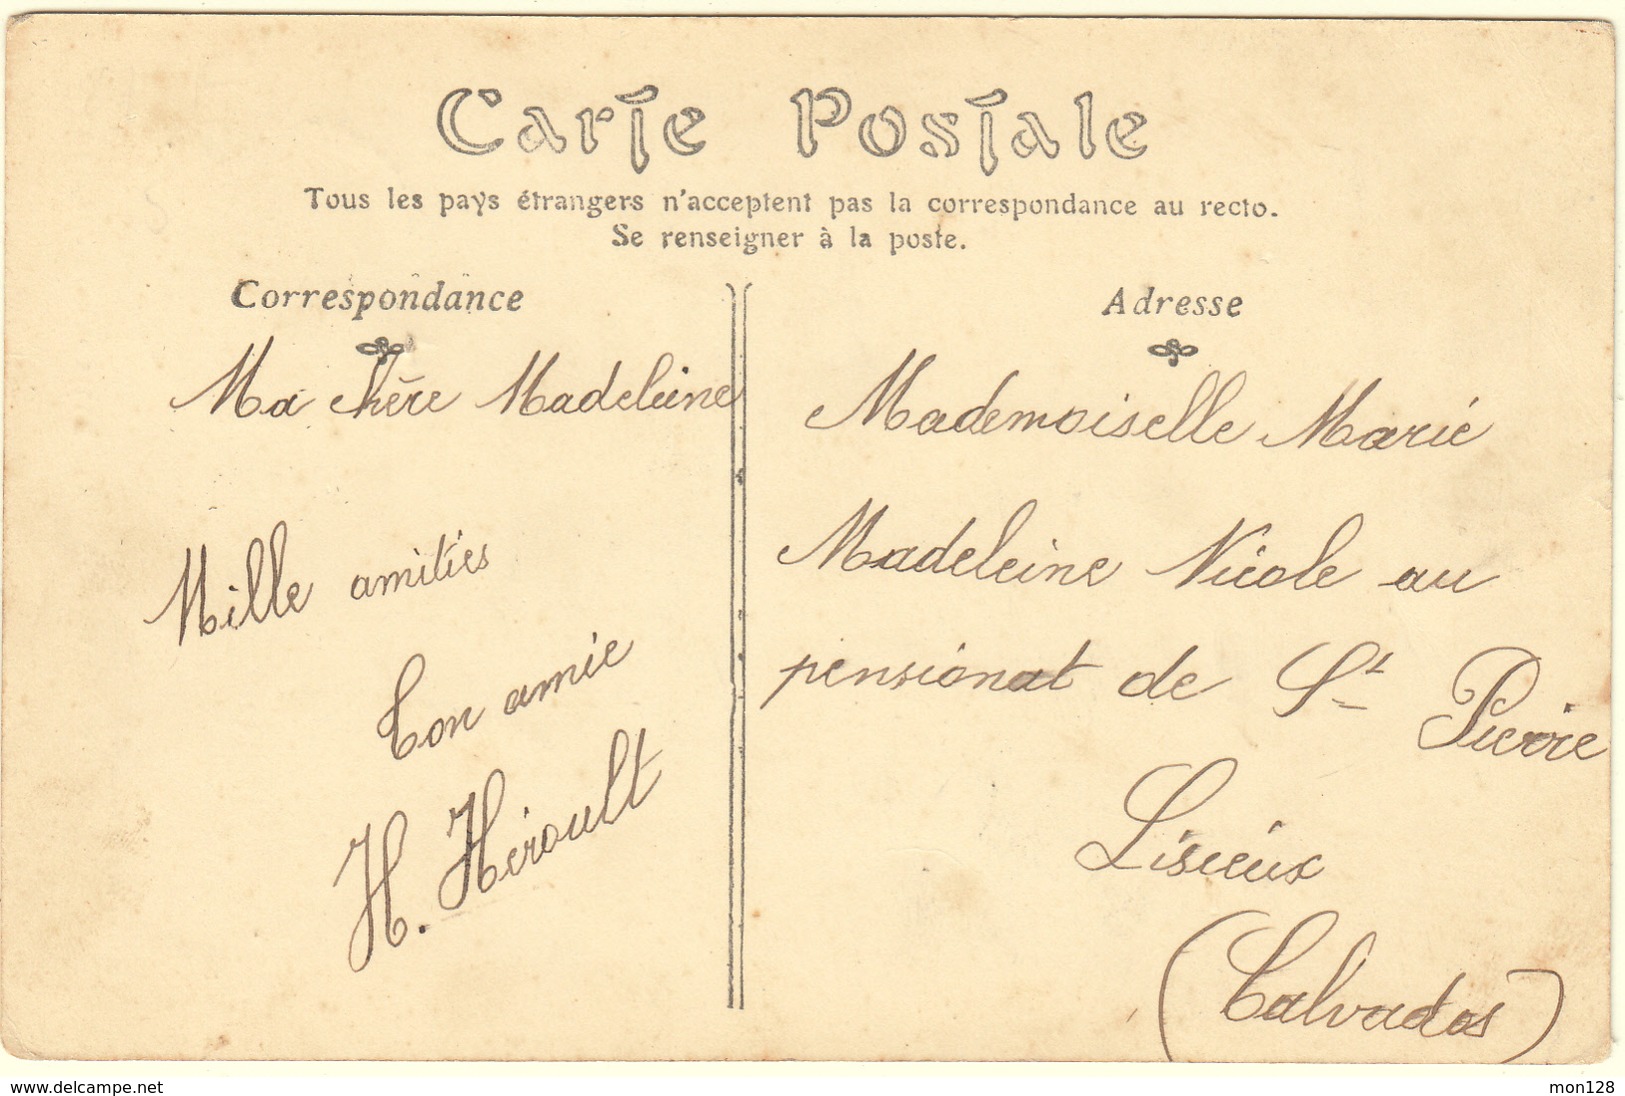 Carte Postale
Tous les pays étrangers n'acceptent pas la correspondance au recto.
Se renseigner à la poste.
Correspondance
Ma chère Madeleine
Mille amitiés
Ton amie
H. Héroult
Adresse
Mademoiselle Marie
Madeleine Nicole au
pensionat de St Pierre
Lisieux
(Calvados)
www.delcampe.net
mon128